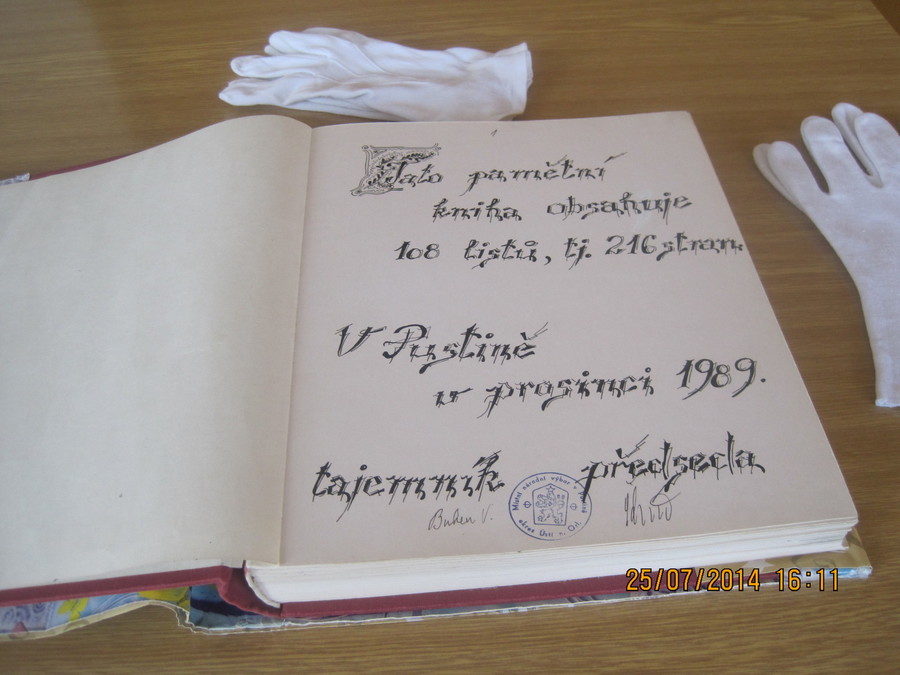 Tato pamětní
kniha obsahuje
108 listů, tj. 216 stran
V Pustině
v prosinci 1989.
tajemník předseda
Buben V.
Místní národní výbor v
okres Ústí n. Orl.
25/07/2014 16:11